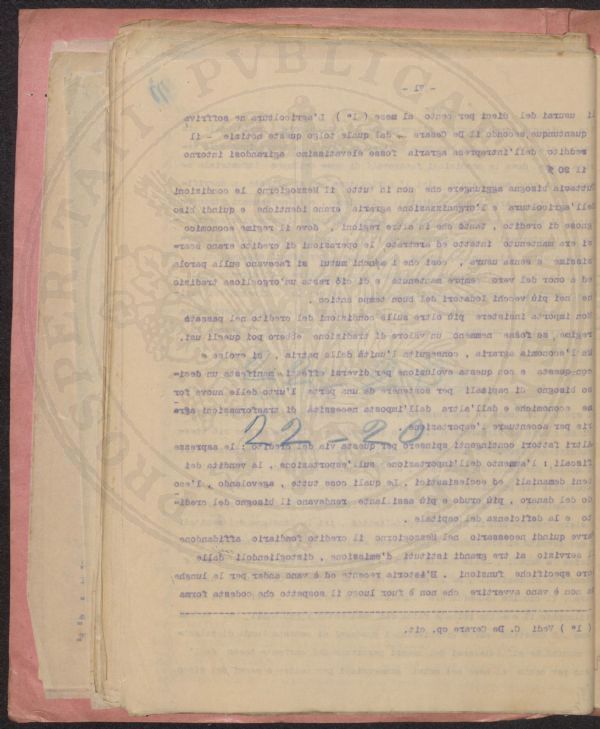 - 71 -
li usurai del dieci per cento al mese ( 1° ) l'agricoltura ne soffriva
quantunque, secondo il De Cesare - dal quale tolgo queste notizie - il
reddito dell'intrapresa agraria fosse elevatissimo agirandosi intorno
il 20 %
uttavia bisogna aggiungere che non in tutto il Mezzogiorno le condizioni
dell'agricoltura e l'organizzazione agraria erano identiche e quindi biso
gnose di credito , tantó che in altre regioni , dove il regime economico
si era mantenuto intatto ed arretrato le operazioni di credito erano scar=
sissime e senza usura , cosí che i mutui si facevano sulla parola
ed a onor del vero sempre mantenuta e di ció resta un'orgogliosa tradizio
ne nei piú vecchi lodatori del buon tempo antico .
Non importa insistere piú oltre sulle condizioni del credito nel passato
regime, se fosse nemmeno un valore di tradizione ebbero poi quegli usi.
Ma l'economia agraria , conseguita l'unitá della patria , si evolse e
con questa e con questa evoluzione per diversi effetti manifesta un deci=
so bisogno di capitali per sostenere da una parte l'urto delle nuove for
me economiche e dall'altra dall'imposta necessitá di trasformazioni agra
rie per accentuare l'esportazione
22-20
Altri fattori contingenti spinsero per questa via del credito : le asprezze
fiscali : l'aumento dell'importazione sull'esportazione , la vendita dei
beni demaniali ed ecclesiastici , le quali cose tutto , agevolando , l'eso
do del danaro , piú crudo e piú assillante rendevano il bisogno del credi=
to e la deficienza del capitale .
Parve quindi necessario nel Mezzogiorno il credito fondiario affidandone
il servizio ai tre grandi istituti d'emissione , distogliendoli dalle
loro specifiche funzioni . E'istoria recente ed é vano andar per le lunghe,
ma non é vano avvertire che non é fuor luogo il sospetto che codesta forma
( 1° ) Vedi C. De Cesare op. cit.
PROSPERITATI PVBLICA